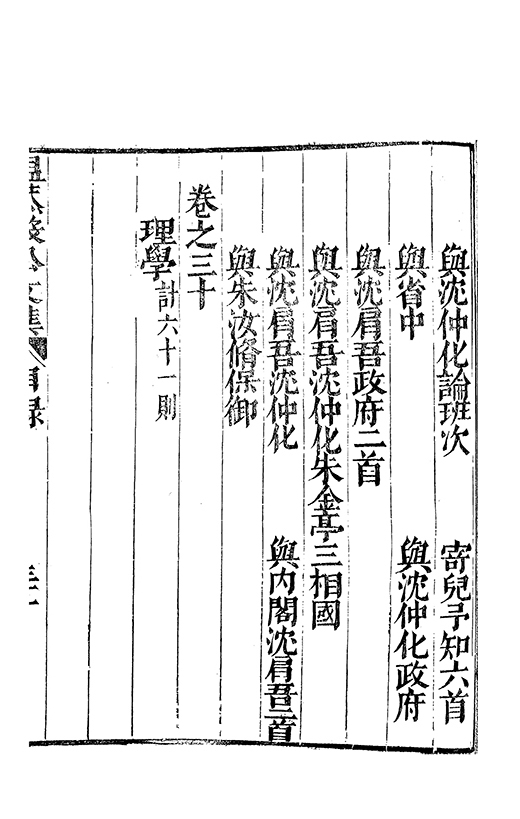 與沈仲化論班次　寄兒子知六首
與省中　與沈仲化政府
與沈肩吾政府二首
與沈肩吾沈仲化朱金亭三相國
與沈肩吾沈仲化　與內閣沈肩吾三首
與朱汝脩保御
卷之三十
理學計六十一則
溫恭毅公文集　目錄